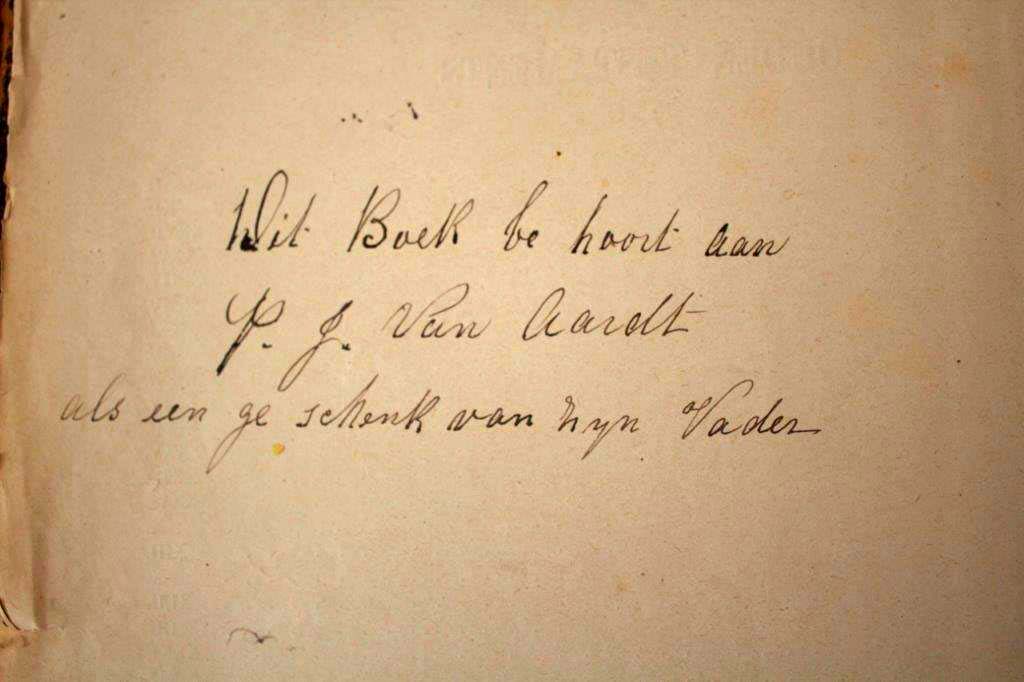 Dit Boek be hoort aan
P. J. Van Aardt
als een ge schenk van zyn Vader